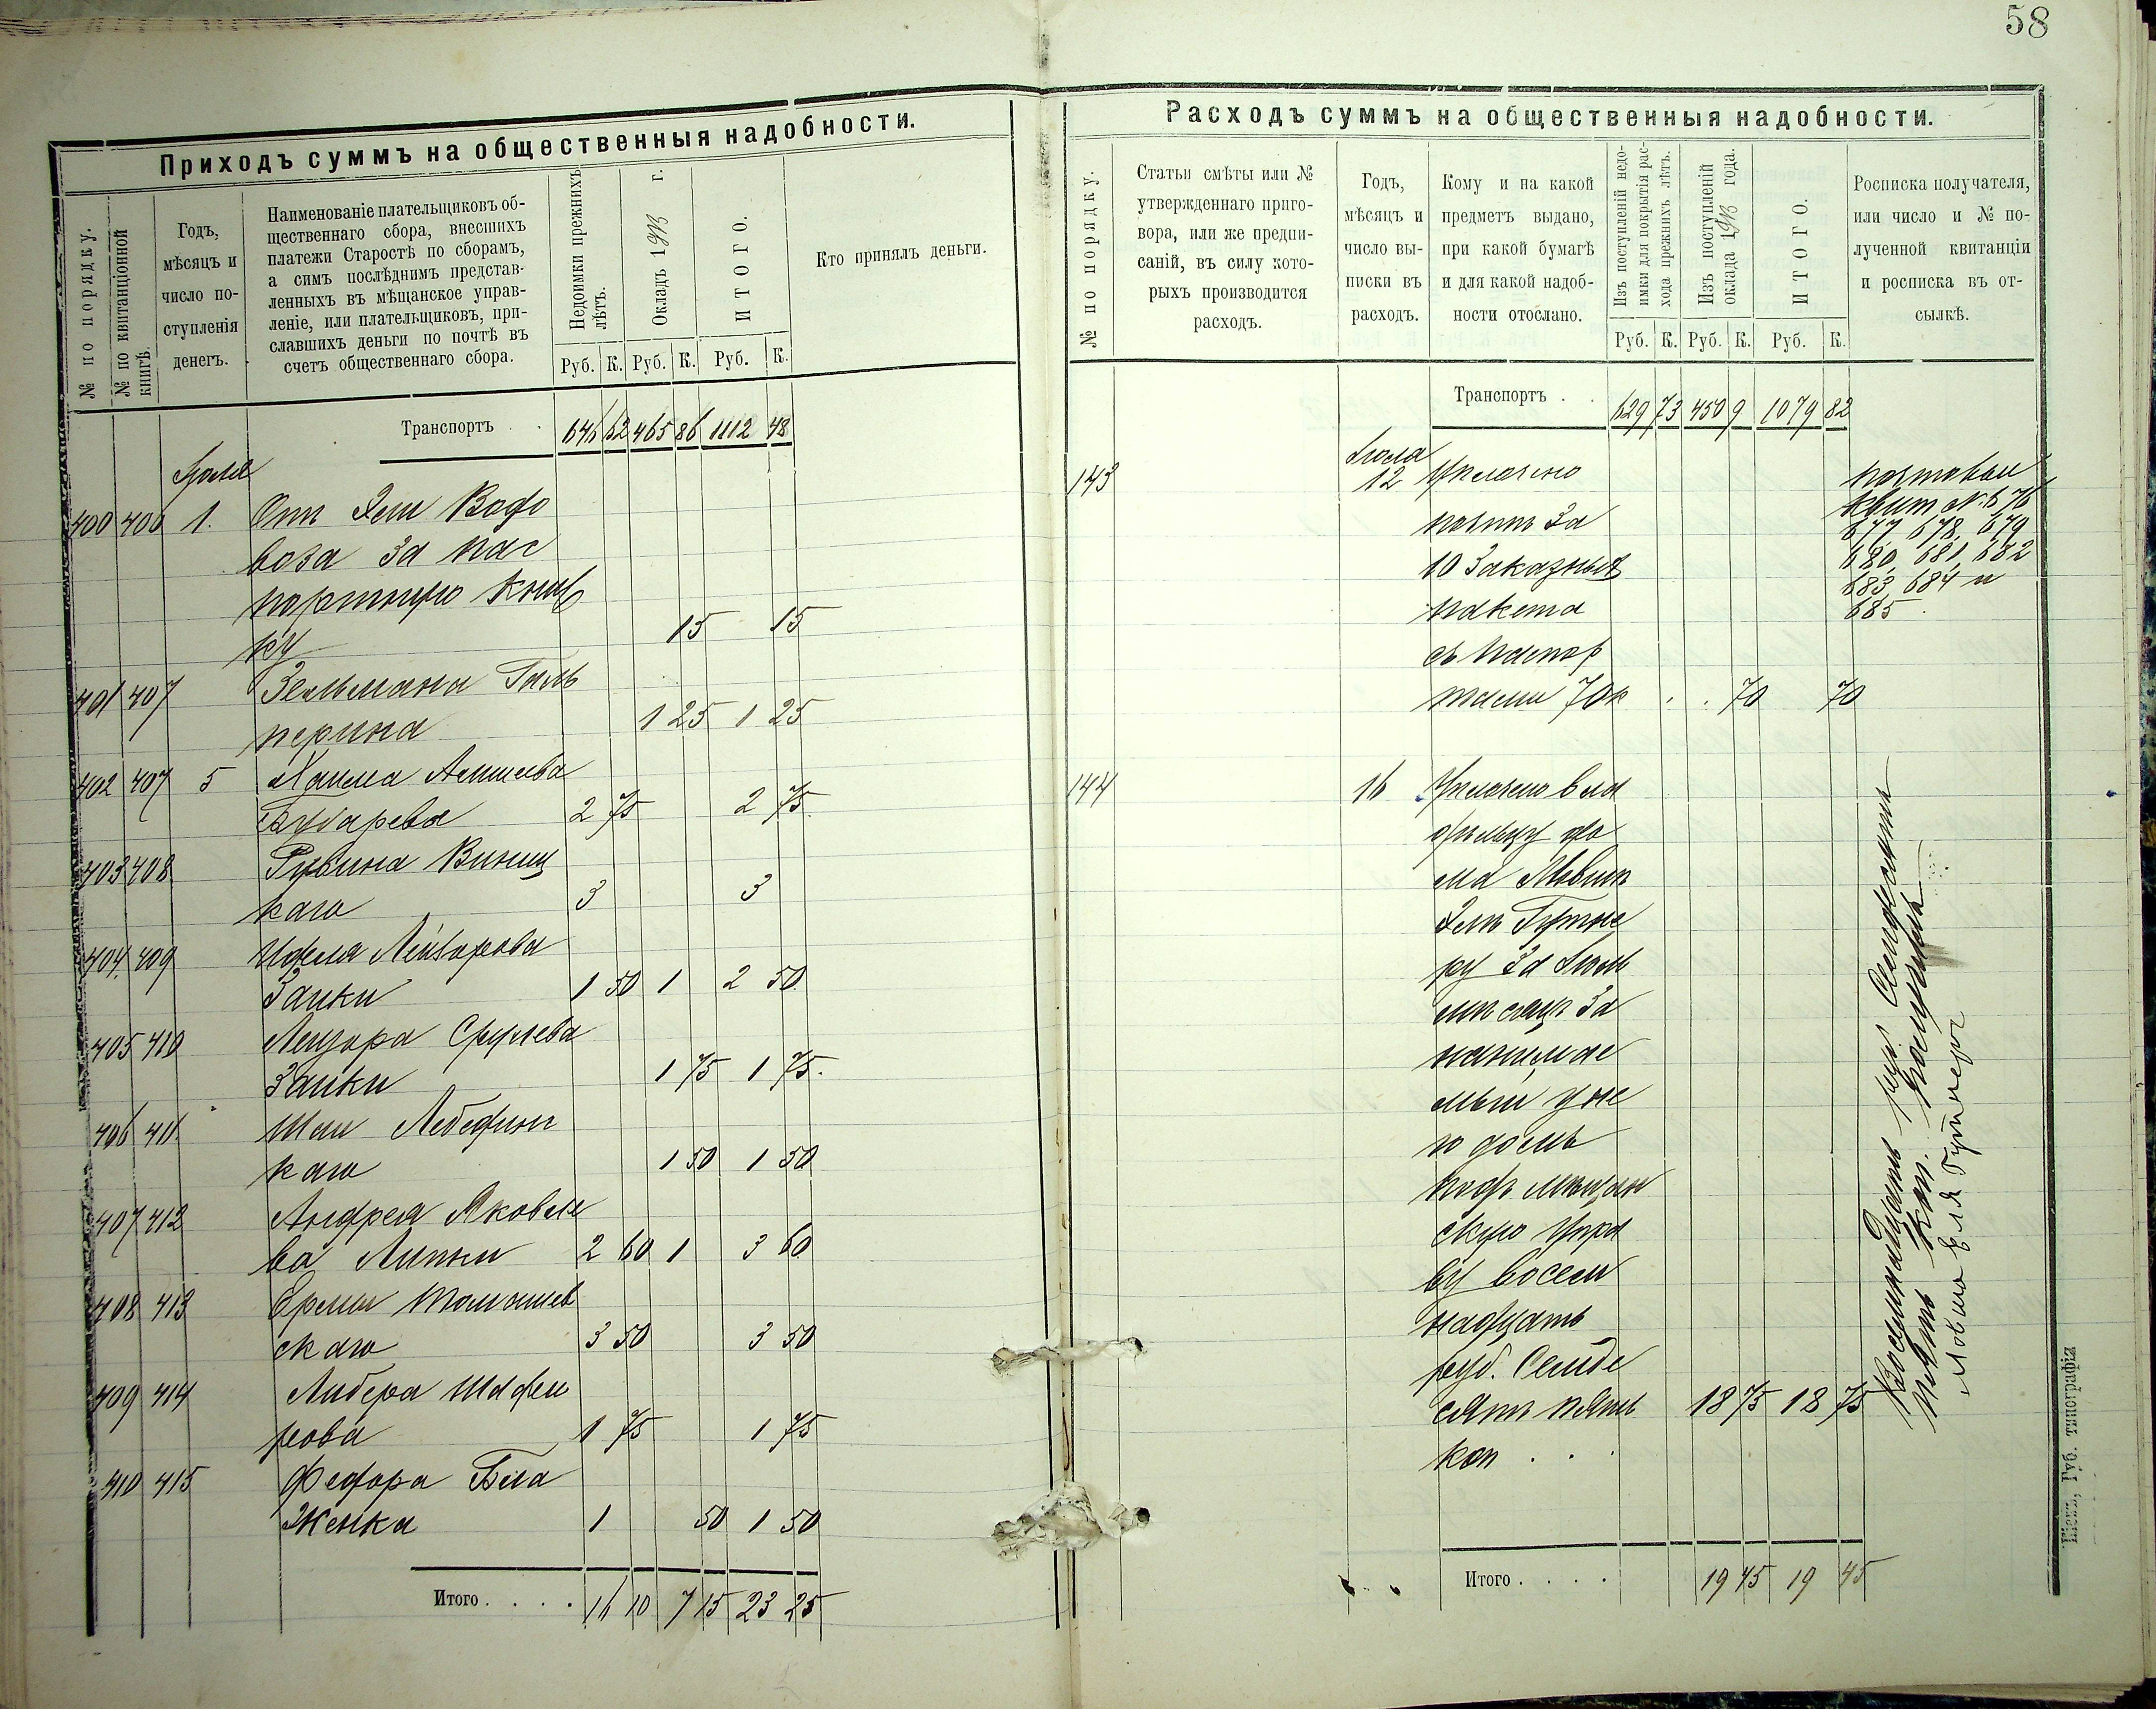 58
Приходъ суммъ на общественныя надобности.
№ по порядку.
№ по квитанціонной книгѣ.
Годъ,
мѣсяцъ и
число по-
ступленія
денегъ.
Наименованіе плательщиковъ об-
щественнаго сбора, внесшихъ
платежи Старостѣ по сборамъ,
а симъ послѣднимъ представ-
ленныхъ въ мѣщанское управ-
леніе, или плательщиковъ, при-
славшихъ деньги по почтѣ въ
счетъ общественнаго сбора.
Недоимки прежнихъ
лѣтъ.
Окладъ 1913 г.
ИТОГО.
Кто принялъ деньги.
Руб. К. Руб. К. Руб. К.
Транспортъ . . 646 62 465 86 1112 48
Іюля
400 406 1. Отъ Эли Водо
воза за пас
портную книж
ку 15 15
401 407 Зельмана Галь
перина 1 25 1 25
402 407 5 Хаима
2 75 2 75
403 408 Рувина Виниц
каго 3 3
404 409 Иделя Лейзорова
Заики 1 50 1 2 50
405 410 Лейзора Срулева
Заики 1 75 1 75
406 411 Шаи Лебединс
каго 1 50 1 50
407 412 Андрея Яковле
ва Липки 2 60 1 3 60
408 413 Еремы Томашев
скаго 3 50 3 50
409 414 Либера Шафи
рова 1 75 1 75
410 415 Федора Бла
женка 1 50 1 50
Итого . . . . 16 10 7 15 23 25
Расходъ суммъ на общественныя надобности.
№ по порядку.
Статьи смѣты или №
утвержденнаго приго-
вора, или же предпи-
саній, въ силу кото-
рыхъ производится
расходъ.
Годъ,
мѣсяцъ и
число вы-
писки въ
расходъ.
Кому и на какой
предметъ выдано,
при какой бумагѣ
и для какой надоб-
ности отослано.
Изъ поступленій недо-
имки для покрытія рас-
хода прежнихъ лѣтъ.
Изъ поступленій
оклада 1913 года.
ИТОГО.
Росписка получателя,
или число и № по-
лученной квитанціи
и росписка въ от-
сылкѣ.
Руб. К. Руб. К. Руб. К.
Транспортъ . . 629 73 450 9 1079 82
Іюля
143 12 Уплачено
почтѣ за
10 заказныхъ
пакета
съ паспор
тами 70 к . . 70 70
почтовыи
квит № 676
677, 678, 679
680, 681, 682
683, 684 и
685
144 16 Уплачено вла
дѣльцу до
ма Мовшѣ
Элѣ Гутне
ру за Іюль
мѣсяцъ за
нанимае
мый у не
го домъ
подъ мѣщан
скую Упра
ву восем
надцать
руб. Семде
сятъ пять 18 75 18 75
коп . . .
Восемнадцать руб. Семдесятъ
пять коп. получилъ
Мовша Еля Гутнеръ
Итого . . . . 19 45 19 45
Кіевъ, Губ. типографія